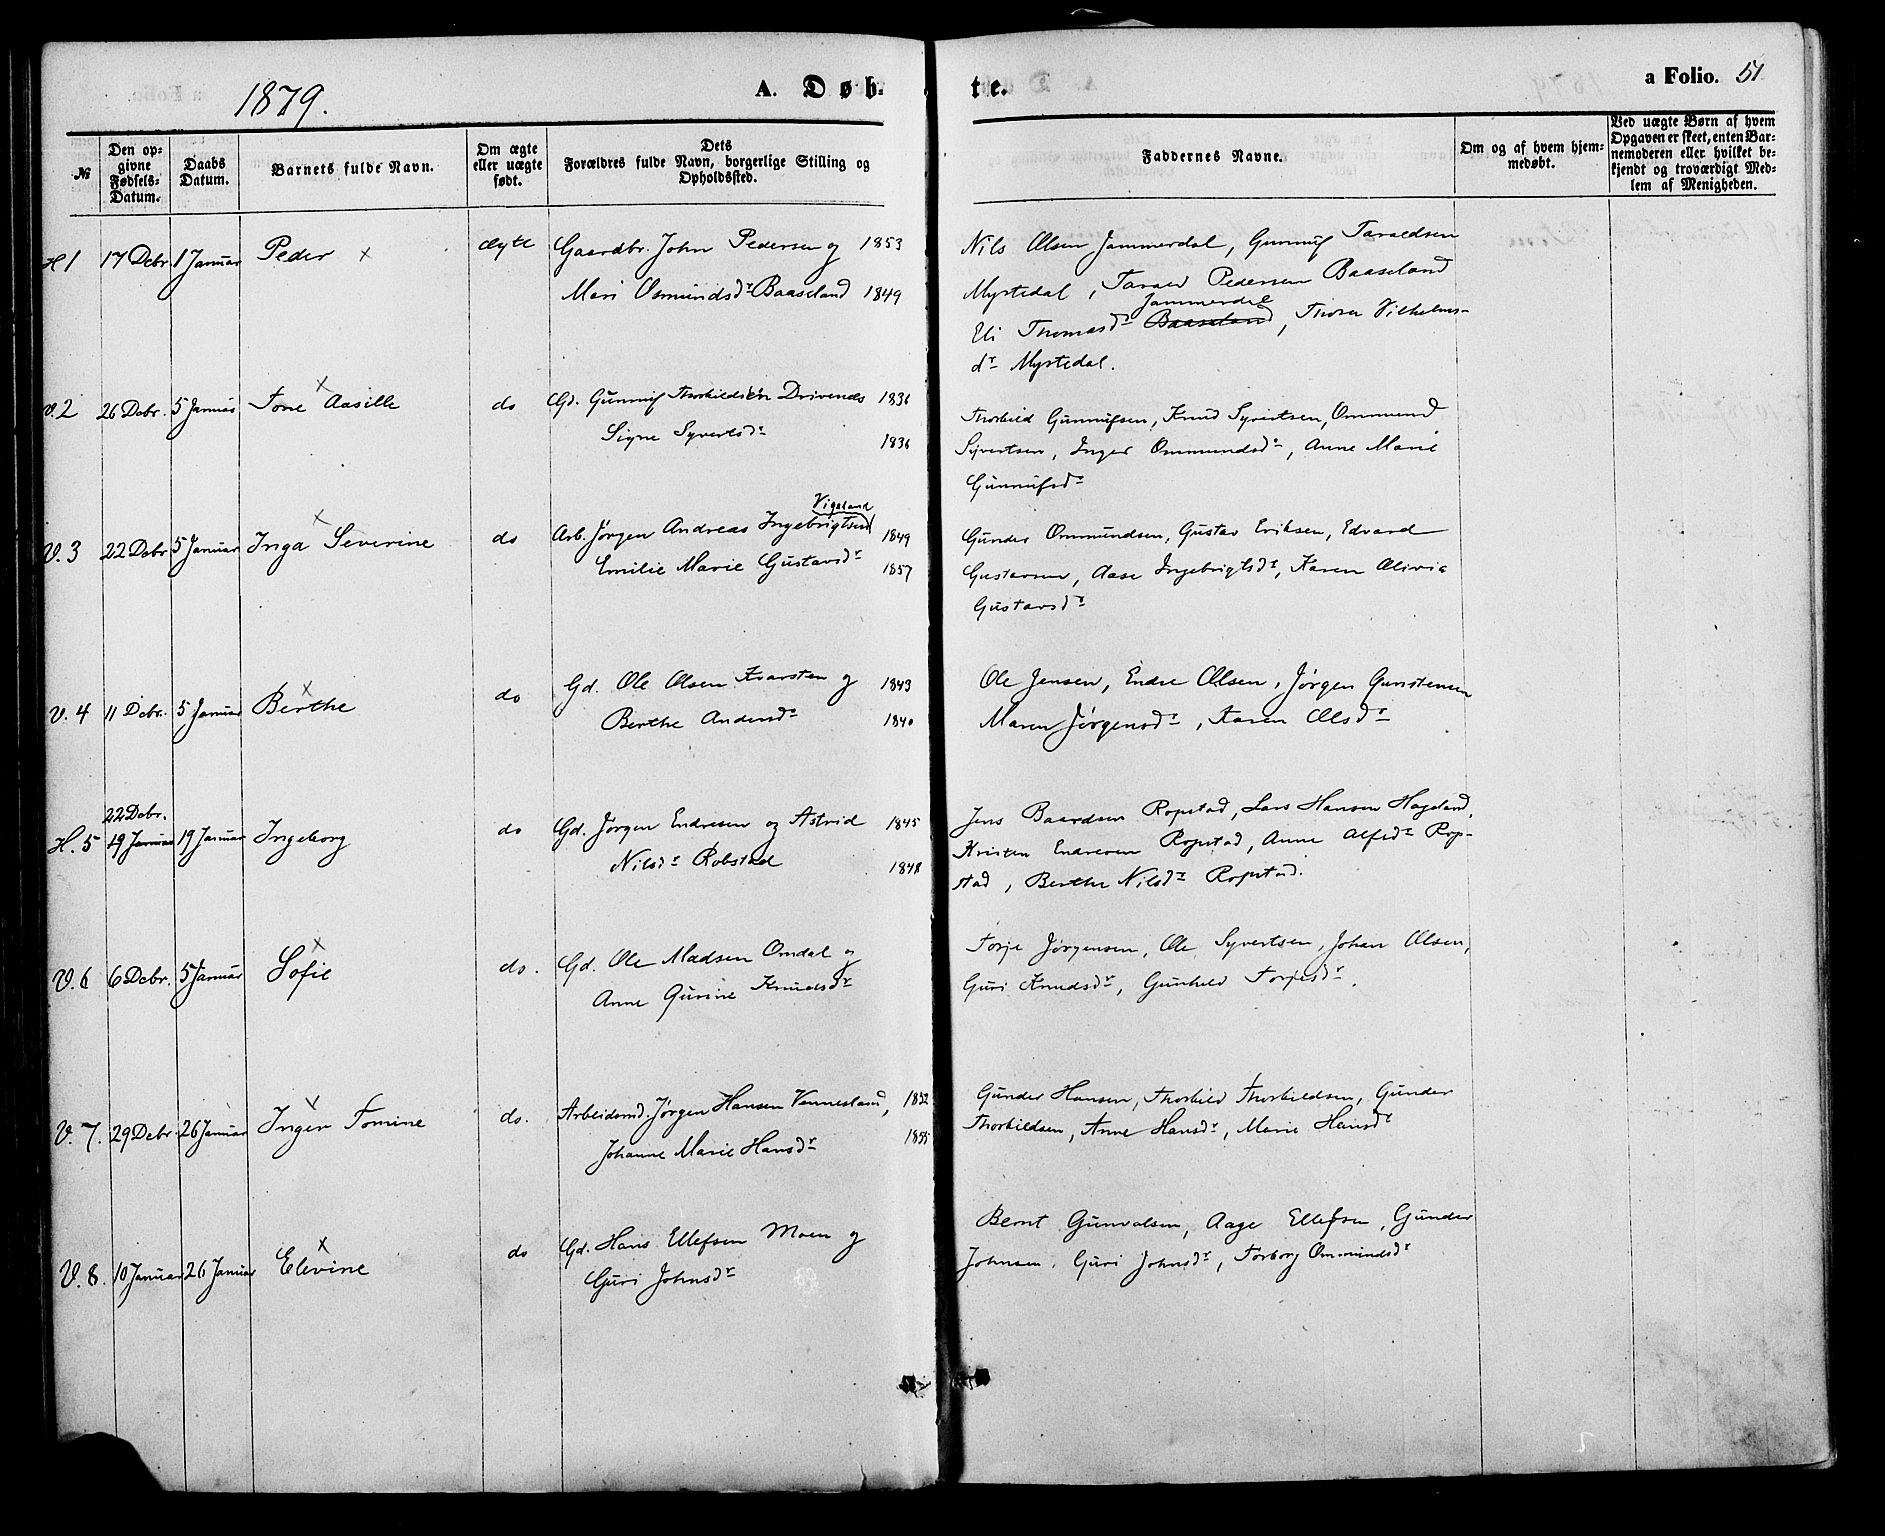 1879.
A. Døb-
te.
a Folio. 51
№
Den op-
givne
Fødsels-
Datum.
Daabs
Datum.
Barnets fulde Navn.
Om ægte
eller uægte
født.
Dets
Forældres fulde Navn, borgerlige Stilling og
Opholdssted.
Faddernes Navne.
Om og af hvem hjem-
medøbt.
Ved uægte Børn af hvem
Opgaven er skeet, enten Bar-
nemoderen eller hvilket be-
kjendt og troværdigt Med-
lem af Menigheden.
H 1 17 Debr. 1 Januar Peder x ægte Gaardbr. John Pedersen og 1853
Mari Osmundsdr Baaseland 1849
Nils Olsen Jammerdal, Gunnuf Taraldsen
Myrtedal, Tarald Pedersen Baaseland
Jammerdal
Eli Thomasdr Baaseland, Thora Vilhelms-
dr Myrtedal.
V. 2 26 Debr. 5 Januar Tone Aasille x do Gd. Gunnuf Thorkildsen Drivenes 1836
Signe Syvertsdr 1836
Thorkild Gunnufsen, Knud Syvertsen, Ommund
Syvertsen, Inger Ommundsdr, Anne Marie
Gunnufsdr
Vigeland
V. 3 22 Debr 5 Januar Inga Severine x do Arb. Jørgen Andreas Ingebrigtsen 1849
Emilie Marie Gustavsdr 1857
Gunder Ommundsen, Gustav Eriksen, Edvard
Gustavsen, Aase Ingebrigtsdr, Karen Olivia
Gustavsdr
V. 4 11 Debr. 5 Januar Berthe x do Gd. Ole Olsen Kvarsten og 1843
Berthe Andersdr 1840
Ole Jensen, Endre Olsen, Jørgen Gunstensen
Maren Jørgensdr, Karen Olsdr
22 Debr.
H. 5 19 Januar 19 Januar Ingeborg do Gd. Jørgen Endresen og Astrid 1845
Nilsdr Robstad 1848
Jens Baardsen Ropstad, Lars Hansen Hageland,
Kristen Endresen Ropstad, Anne Alfsdr Rop-
stad, Berthe Nilsdr Ropstad.
V. 6 6 Debr. 5 Januar Sofie x do. Gd. Ole Madsen Omdal og
Anne Gurine Knudsdr
Torje Jørgensen, Ole Syvertsen, Johan Olsen,
Guri Knudsdr, Gunhild Torjesdr.
V. 7. 29 Debr. 26 Januar Inger Tomine x do. Arbeidsmd. Jørgen Hansen Vennesland, 1852
Johanne Marie Hansdr 1855
Gunder Hansen, Thorkild Thorkildsen, Gunder
Thorkildsen, Anne Hansdr, Marie Hansdr
V. 8. 10 Januar 26 Januar Elevine x do Gd. Hans Ellefsen Moen og
Guri Johnsdr
Bernt Gunvalsen, Aage Ellefsen, Gunder
Johnsen, Guri Johnsdr, Torborg Ommundsdr